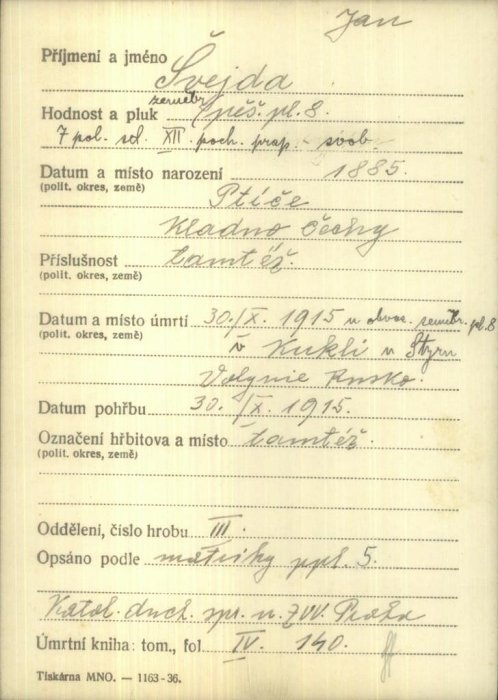 Jan
Příjmení a jméno Švejda
zeměbr.
Hodnost a pluk pěš. pl. 8.
7 pol. setn. XII. poch. prap. - svob.
Datum a místo narození 1885.
(polit. okres, země)
Ptíče
Kladno Čechy
Příslušnost tamtéž.
(polit. okres, země)
Datum a místo úmrtí 30./IX. 1915 u obvaz. zeměbr. pl. 8
(polit. okres, země)
v Kukli u Styru
Volynie Rusko.
Datum pohřbu 30./IX. 1915.
Označení hřbitova a místo tamtéž.
(polit. okres, země)
Oddělení, číslo hrobu III.
Opsáno podle matriky ppl. 5.
Katol. duch. spr. u ZVV. Praha
Úmrtní kniha: tom., fol IV. 140.
Tiskárna MNO. — 1163-36.